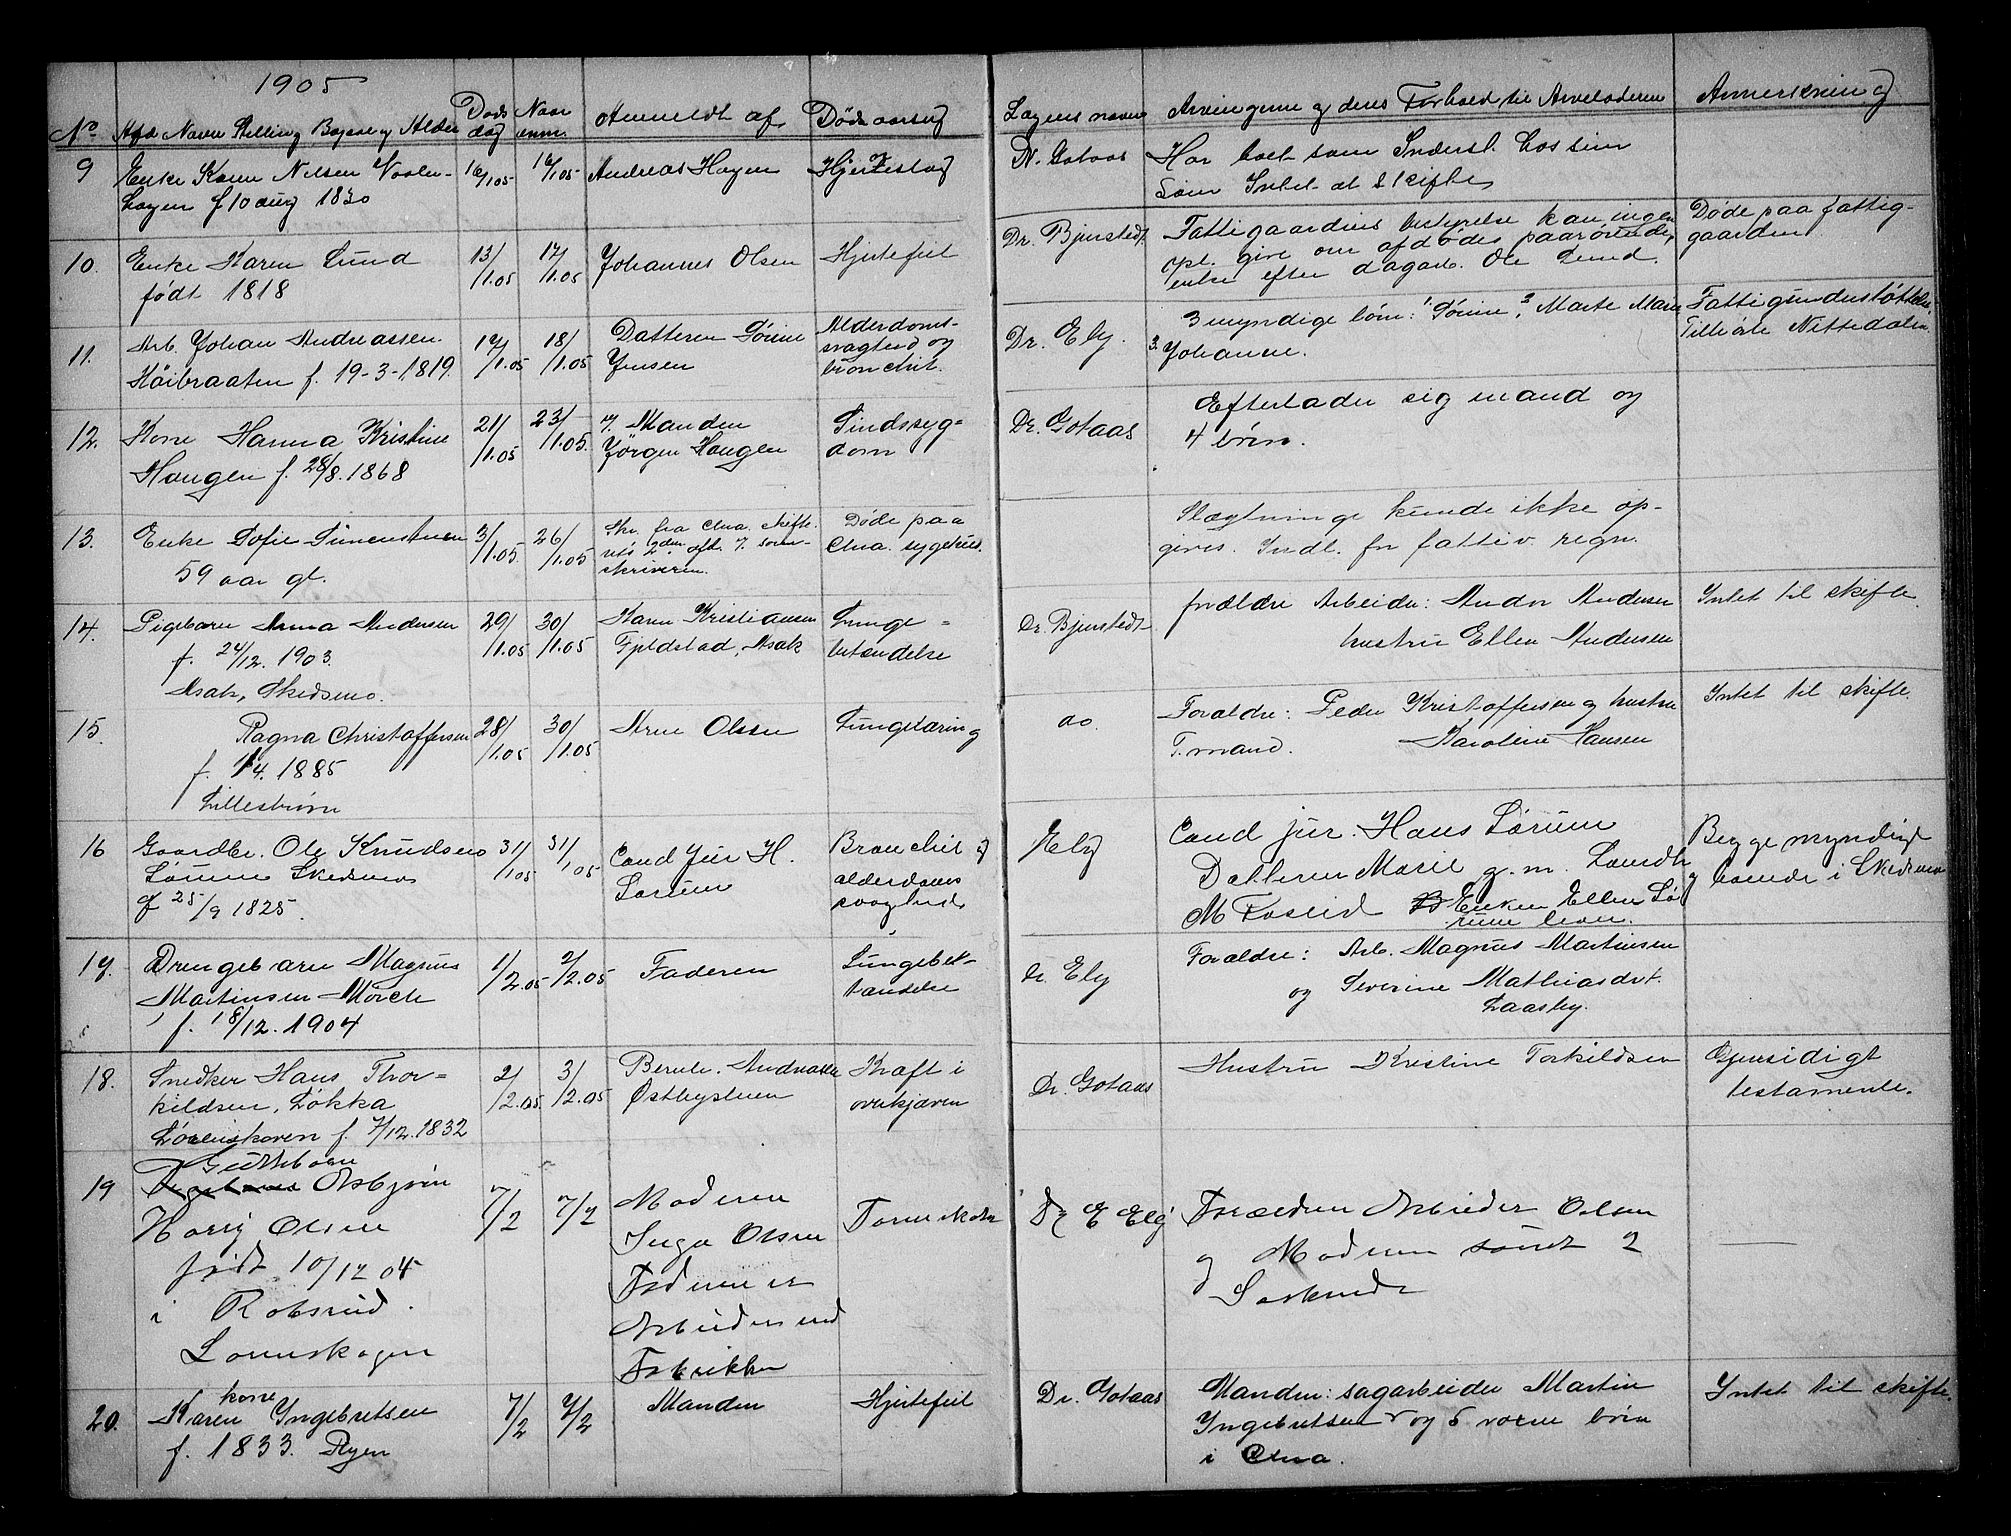 1905
No. Afd Navn Stilling, Bopæl og Alder
Døds dag
Naar anm.
Anmeldt af
Dødsaarsag
Lægens navn
Arvingerne og deres Forhold til Arveladeren
Anmerkning
9 Enke Karen Nilsen
f 10 aug 1830
16/1.05
16/1.05
Andreas Hagen
Hjerteslag
Gotaas
Har boet som Inderst hos sin
Søn Intet at skifte
10. Enke Karen Lund
født 1818
13/1.05
17/1.05
Johannes Olsen
Hjertefeil
Dr. Bjerstedt
Fattigaardens bestyrelse kan ingen
opl. give om afdødes paarørende,
enke efter dagarb. Ole Lund.
Døde paa fattig-
gaarden
11. Arb. Johan Andreassen
Høibraaten f. 19-3-1819.
17/1.05
18/1.05
Datteren Sørine
Jensen
Alderdoms-
svaghed og
bronchit.
Dr. Ely.
3 myndige børn: 1. Sørine, 2. Marte Marie
3. Johanne.
Fattigunderstøttelse.
Tilhørte Nittedalen.
12. Kone Hanna Kristine
Haugen f. 28/8. 1868
21/1.05
23/1.05.
Manden
Jørgen Haugen
Sindssyg-
dom
Dr. Gotaas
Efterlader sig mand og
4 børn.
13. Enke Sofie Simenstuen
59 aar gl.
3/1.05.
26/1.05
Skr. fra Chra. skifte-
ret's 2den afd. t. soren-
skriveren.
Døde paa
Chra. sygehus.
Slægtninge kunde ikke op-
gives. Indl. for fattigv. regn.
14. Pigebarn Anna Andersen
f. 24/12. 1903.
Asak, Skedsmo.
29/1.05
30/1.05
Karen Kristiansen
Fjeldstad, Asak
Lunge-
betændelse
Dr. Bjerstedt
forældre Arbeider: Andor Andersen
hustru Ellen Andersen
Intet til skifte.
15. Ragna Christoffersen
f. 1/4. 1885
Lillestrøm
28/1.05
30/1.05
Arne Olsen
Lungetæring
do
Forældre: Peder Kristoffersen og hustru
T.mand. Karoline Hansen
Intet til skifte.
16 Gaardbr. Ole Knudsen
Sørum Skedsmo
f 25/9 1825.
31/1 05
31/1 05
Cand Jur H.
Sørum
Bronchit og
alderdoms
svaghed
Ely
Cand jur. Hans Sørum
Datteren Marie g. m. Landh
M Foseid Enken Ellen Sø
rum lever.
Begge myndige
og boende i Skedsmo
17. Drengebarn Magnus
Martinsen Mørch
f. 18/12. 1904
1/2.05
2/2.05
Faderen
Lungebe-
tændelse
Dr. Ely
Forældre: Arb. Magnus Martinsen
og Severine Mathiasdt.
Laasby.
18. Snedker Hans Thor-
kildsen, Løkka
Lørenskoven f. 7/12. 1832
2/2.05.
3/2.05
Bernh. Andreassen
Østbystuen
Kræft i
overkjæven
Dr. Gotaas
Hustru Kristine Torkildsen
Gjensidigt
testamente.
19 Guttebarn
Pigebarn Asbjørn
Harry Olsen
født 10/12 04
i Robsrud.
Lørenskogen
7/2
7/2
Moderen
Inga Olsen
Faderen er
Arbeider ved
Fabrikken
Dr E Ely
Forældren Arbeider Olsen
og Moderen samt 2
Søskende
20. kone
Karen Ingebretsen
f. 1833. Ryen
7/2
7/2
Manden
Hjertefeil
Dr. Gotaas
Manden: sagarbeider Martin
Ingebretsen og 5 voxne børn
i Chra.
Intet til skifte.